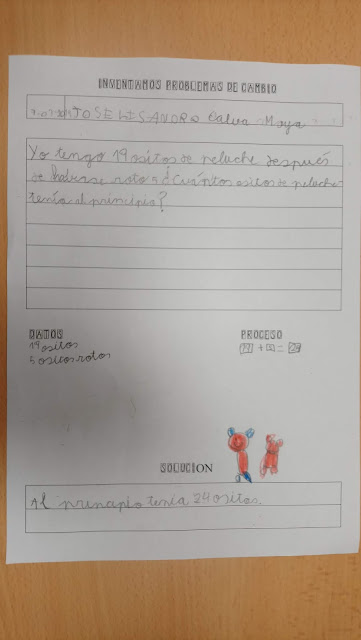 INVENTAMOS PROBLEMAS DE CAMBIO
JOSE LISANDRO Calva Moya
Yo tengo 19 ositos de peluche después
de haberse roto 5 ¿Cuántos ositos de peluche
tenía al principio?
DATOS
19 ositos
5 ositos rotos
PROCESO
SOLUCION
Al principio tenía 24 ositos